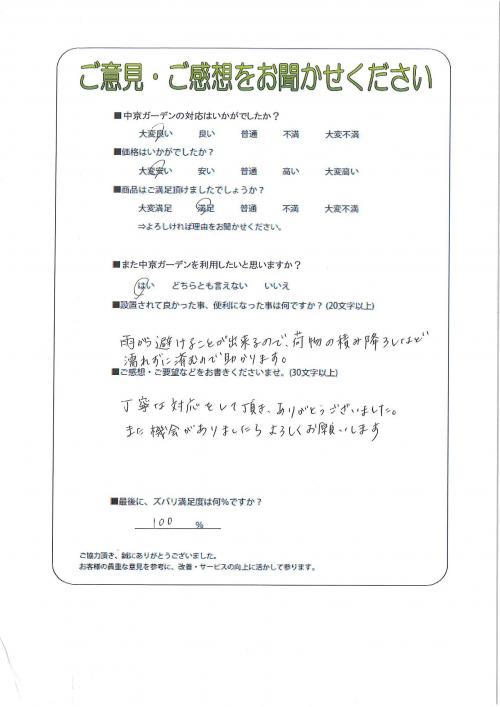 ご意見・ご感想をお聞かせください
■中京ガーデンの対応はいかがでしたか？
大変良い 良い 普通 不満 大変不満
■価格はいかがでしたか？
大変安い 安い 普通 高い 大変高い
■商品はご満足頂けましたでしょうか？
大変満足 満足 普通 不満 大変不満
⇒よろしければ理由をお聞かせください。
■また中京ガーデンを利用したいと思いますか？
はい どちらとも言えない いいえ
■設置されて良かった事、便利になった事は何ですか？(20文字以上)
雨から避けることが出来るので、荷物の積み降ろしなど
濡れずに済むので助かります。
■ご感想・ご要望などをお書きくださいませ。(30文字以上)
丁寧な対応をして頂き、ありがとうございました。
また機会がありましたらよろしくお願いします
■最後に、ズバリ満足度は何％ですか？
100 %
ご協力頂き、誠にありがとうございました。
お客様の貴重な意見を参考に、改善・サービスの向上に活かして参ります。